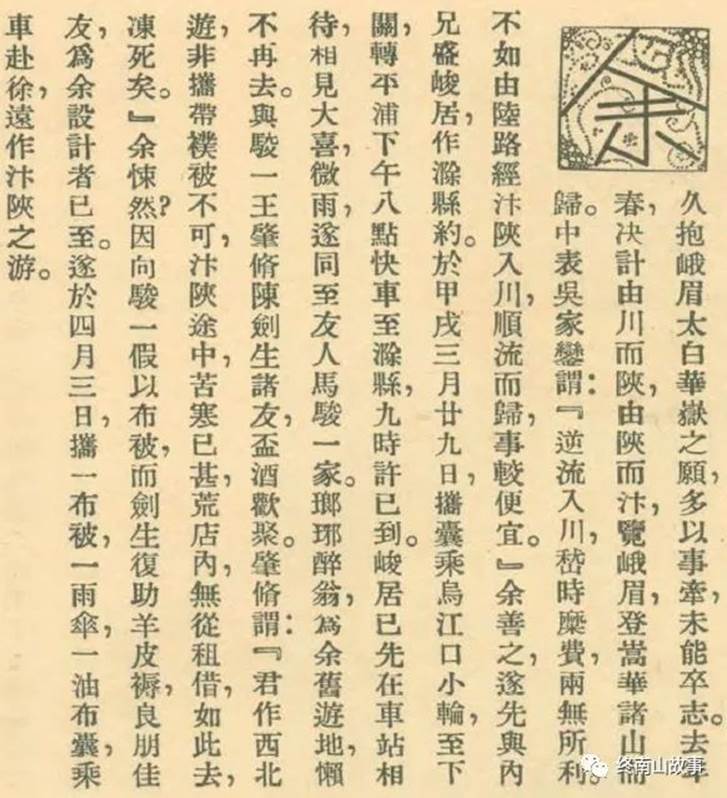 余
久抱峨眉太白華嶽之願,多以事牽,未能卒志。去年
春,決計由川而陝,由陝而汴,覽峨眉,登嵩華諸山而
歸。中表吳家鑾謂:『逆流入川,嵇時糜費,兩無所利。
不如由陸路經汴陝入川,順流而歸,事較便宜。』余善之,遂先與內
兄盛峻居,作滁縣約。於甲戌三月廿九日,攜囊乘烏江口小輪,至下
關轉平浦下午八點快車至滁縣,九時許已到。峻居已先在車站相
待,相見大喜,微雨,遂同至友人馬駿一家。瑯琊醉翁,為余舊遊地,懶
不再去。與駿一王肇脩陳劍生諸友,盃酒歡聚。肇脩謂:『君作西北
遊,非攜帶襆被不可,汴陝途中,苦寒已甚,荒店內,無從租借,如此去,
凍死矣。』余悚然?因向駿一假以布被,而劍生復助羊皮褥,良朋佳
友,為余設計者已至。遂於四月三日,攜一布被,一雨傘,一油布囊,乘
車赴徐,遠作汴陝之游。
终南山故事